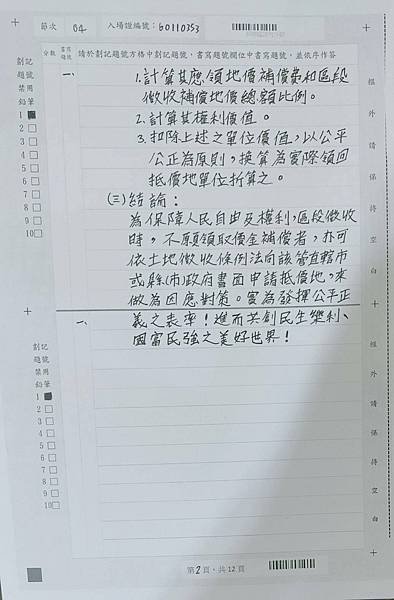 節次 04 入場證編號：60110353
分數 書寫題號 請於劃記題號方格中劃記題號、書寫題號欄位中書寫題號，並依序作答
劃記
題號
禁用
鉛筆
1
2
3
4
5
6
7
8
9
10
一、
1.計算其應領地價補償費和區段
徵收補償地價總額比例。
2.計算其權利價值。
3.扣除上述之單位價值，以公平
公正為原則，換算為實際領回
抵價地單位折算之。
(三)結論：
為保障人民自由及權利，區段徵收
時，不願領取價金補償者，亦可
依土地徵收條例法向該管直轄市
或縣(市)政府書面申請抵價地，來
做為因應對策。實為發揮公平正
一、
義之表率！進而共創民生樂利、
國富民強之美好世界！
劃記
題號
禁用
鉛筆
1
2
3
4
5
6
7
8
9
10
框外請保持空白
框外請保持空白
第2頁，共12頁